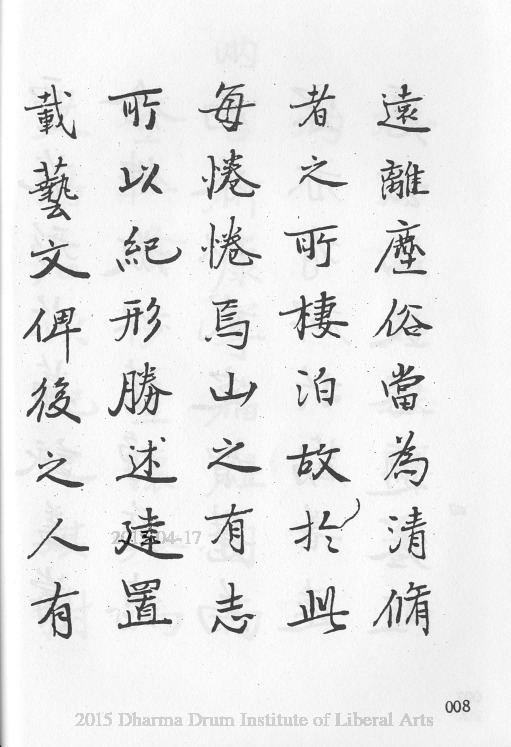 遠離塵俗當為清脩
者之所棲泊故於此
每惓惓焉山之有志
所以紀形勝述建置
載藝文俾後之人有
2015-04-17
008
2015 Dharma Drum Institute of Liberal Arts